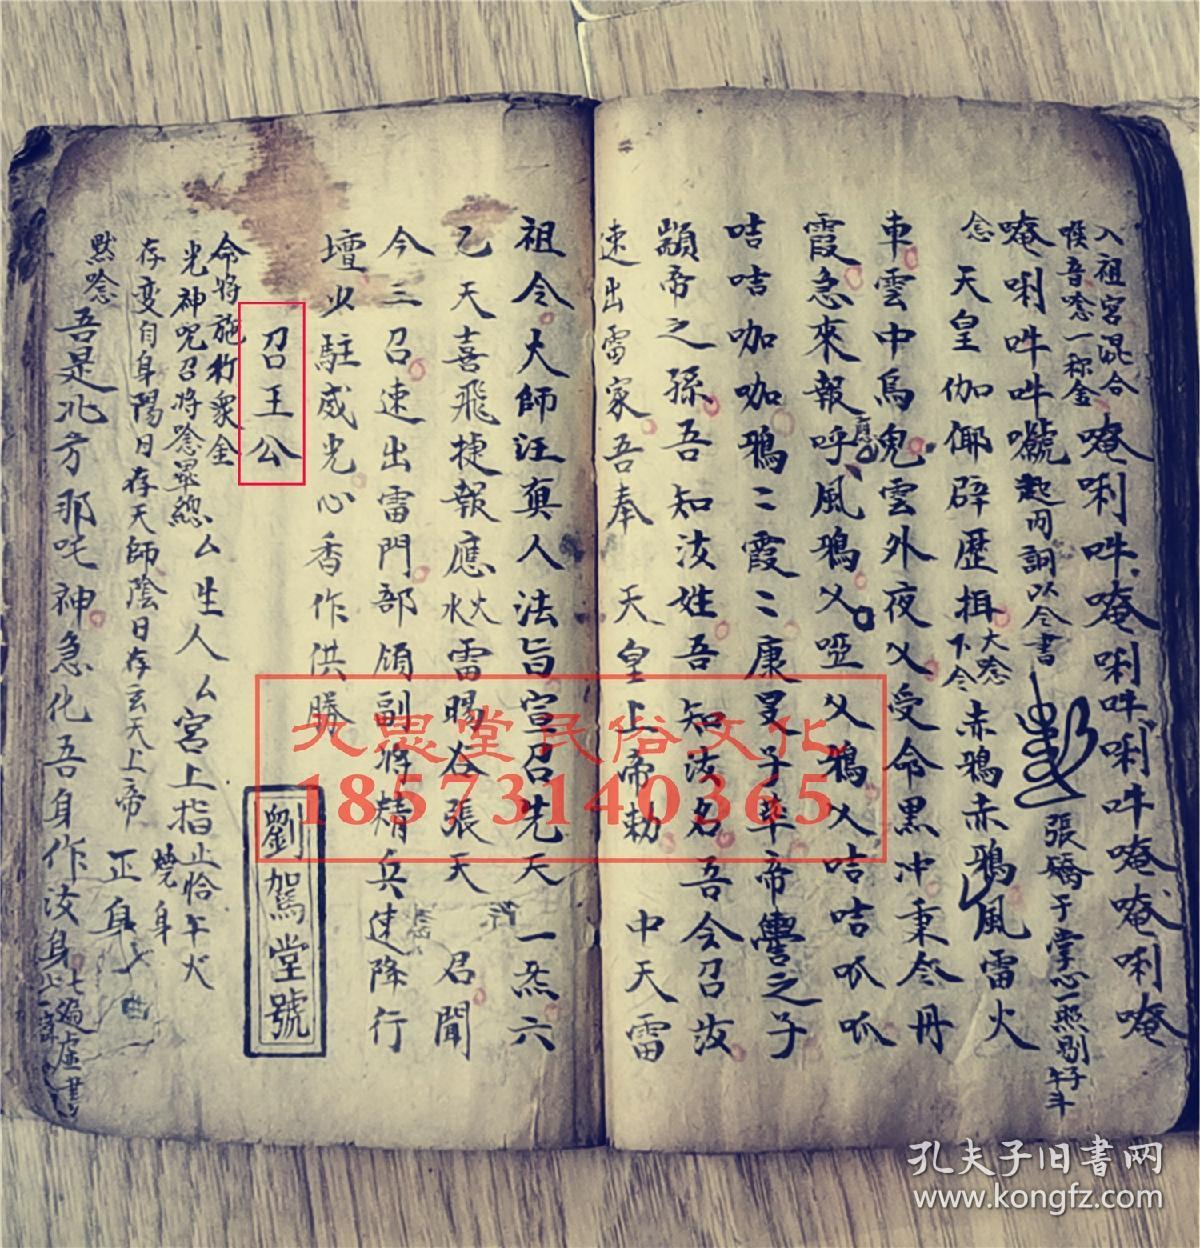 入祖宮混合
喉音唸一称金
唵唎吽唵唎吽唎吽唵唵唎唵
唵唎吽吽
起内詞以令書
張
子掌心一照
念 天皇伽倻辟歷揖
大唸
下令
赤鴉赤鴉風雷火
車雲中烏鬼雲外夜父受命黑冲秉令丹
霞急來報呼風鴉父啞父鴉父咭咭呱呱
咭咭咖咖鴉二霞二康旻子率帝嚳之子
顓帝之孫吾知汝姓吾知汝名吾令召汝
速出雷家吾奉 天皇上帝勅 中天雷
祖令大師汪真人法旨宣召先天一炁六
乙天喜飛捷報應水火雷賜令張天 君聞
今三召速出雷門部領副將精兵速降行
壇火駐威光心香作供勝
召王公
劉駕堂號
命將施行眾金
光神咒召將唸畢總
厶生人厶宮上指止恰午火
燒身
存变自身陽日存天師陰日存玄天上帝 正身
默唸
吾是北方那吒神急化吾身作汝身
七遍虛書
大思堂民俗文化
18573140365
孔夫子旧書网
www.kongfz.com